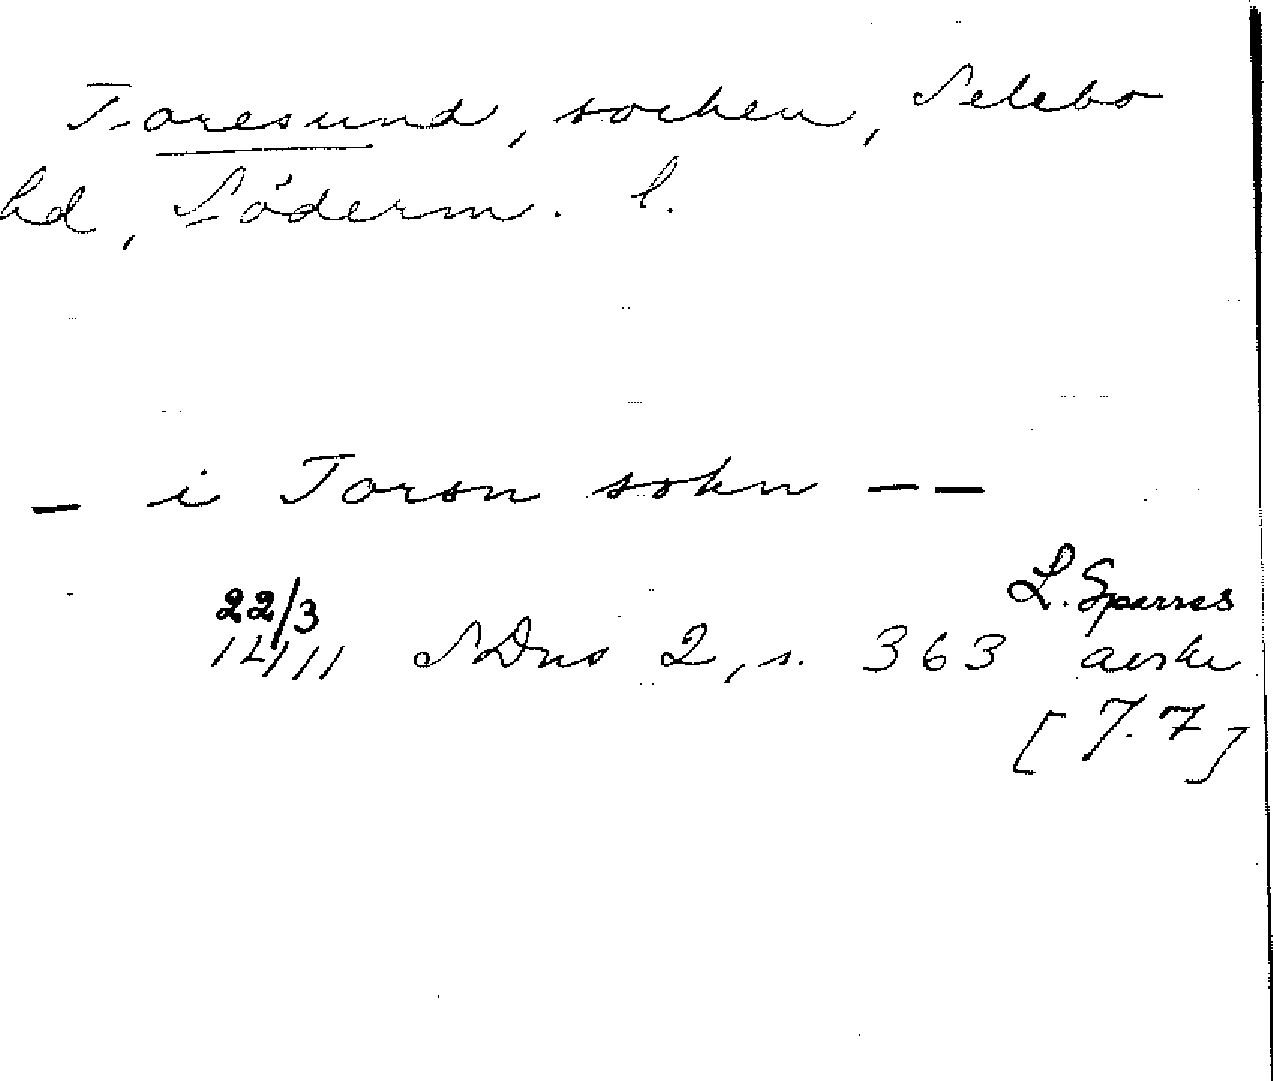 Toresund, socken, Selebo
hd, Söderm. l.
— i Toron sokn — —
22/3
1411 SDns 2, s. 363 L. Sparres
avskr
[7.7]